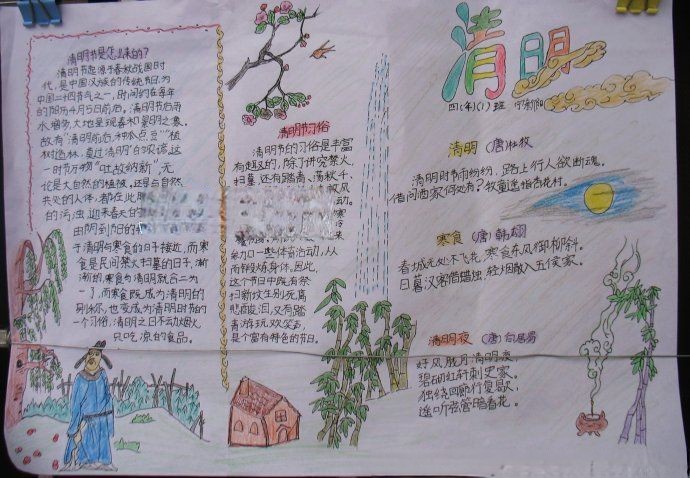 清明
四(年)(1)班
清明节是怎么来的?
清明节起源于春秋战国时
代,是中国汉族的传统节日,为
中国二十四节气之一,时间约在每年
的阳历4月5日前后。清明节后雨
水增多,大地呈现春和景明之象。
故有"清明前后,种瓜点豆""植
树造林,莫过清明"的农谚,这
一时节万物"吐故纳新",无
论是大自然的植被,还是与自然
共处的人体,都在此
的污浊,迎来春天的
由阴到阳的
于清明与寒食的日子接近,而寒
食是民间禁火扫墓的日子,渐
渐的,寒食与清明就合二为
一了,而寒食既成为清明的
别称,也变成为清明时节的
一个习俗,清明之日不动烟火,
只吃凉的食品。
清明节习俗
清明节的习俗是丰富
有趣的,除了讲究禁火、
扫墓,还有踏青、荡秋千、
俗风
动。
寒
参加一些体育活动,从
而锻炼身体,因此,
这个节日中既有祭
扫新坟生别死离
悲酸泪,又有踏
青游玩欢笑声,
是个富有特色的节日。
清明 (唐)杜牧
清明时雨纷纷,路上行人欲断魂。
借问西家何处有?牧童遥指杏花村。
寒食 (唐)韩翃
春城无处不飞花,寒食东风御柳斜。
日暮汉宫传蜡烛,轻烟散入五侯家。
清明夜 (唐)白居易
好风胧月清明夜,
碧砌红轩刺史家。
独绕回廊行复歇,
遥听弦管暗看花。